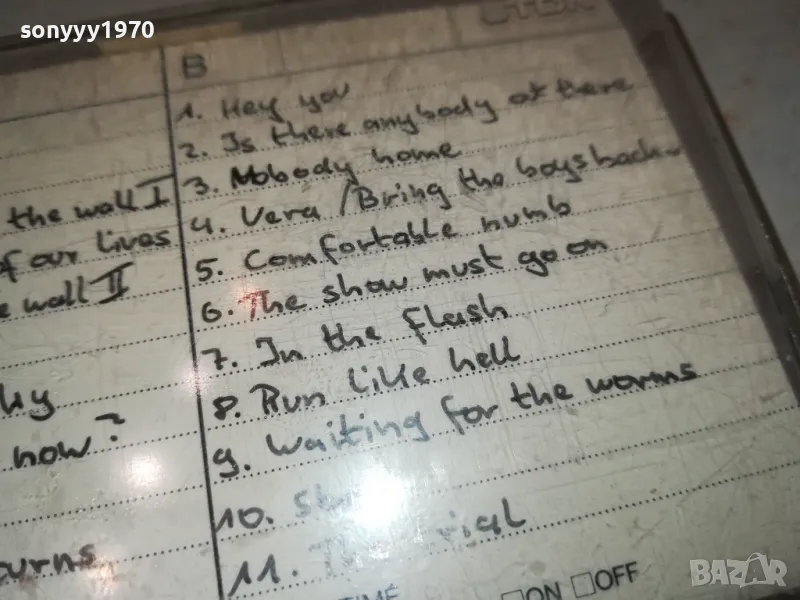 sonyyy1970
TDK
B
1. Hey you
2. Is there anybody at there
3. Nobody home
the wall I
4. Vera / Bring the boys back
of our lives
5. Comfortable numb
wall II
6. The show must go on
7. In the flash
8. Run like hell
how?
9. Waiting for the worms
10.
11.
ON OFF
BAZAR